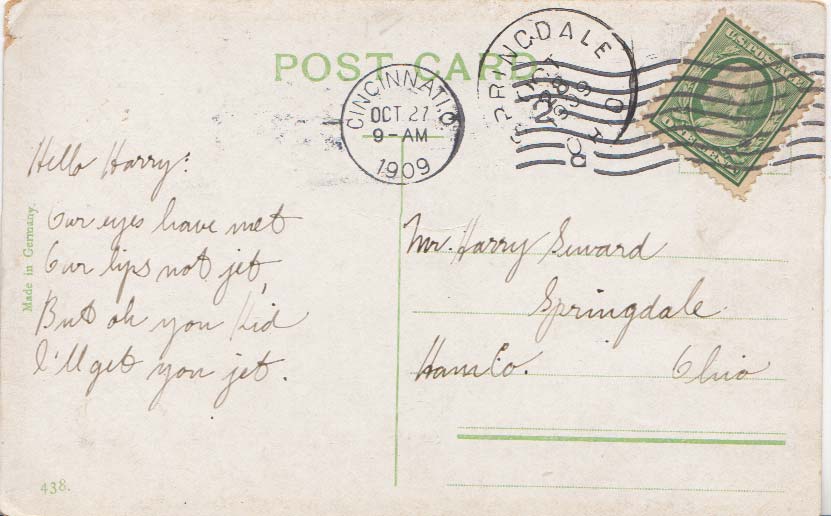 POST CARD
CINCINNATI, O.
OCT 27
9-AM
1909
SPRINGDALE O
OCT
28
1909
U.S. POSTAGE
ONE CENT
Hello Harry:
Our eyes have met
Our lips not jet,
But oh you Kid
I'll get you jet.
Mr. Harry Seward
Springdale
Ham Co. Ohio
Made in Germany.
438.